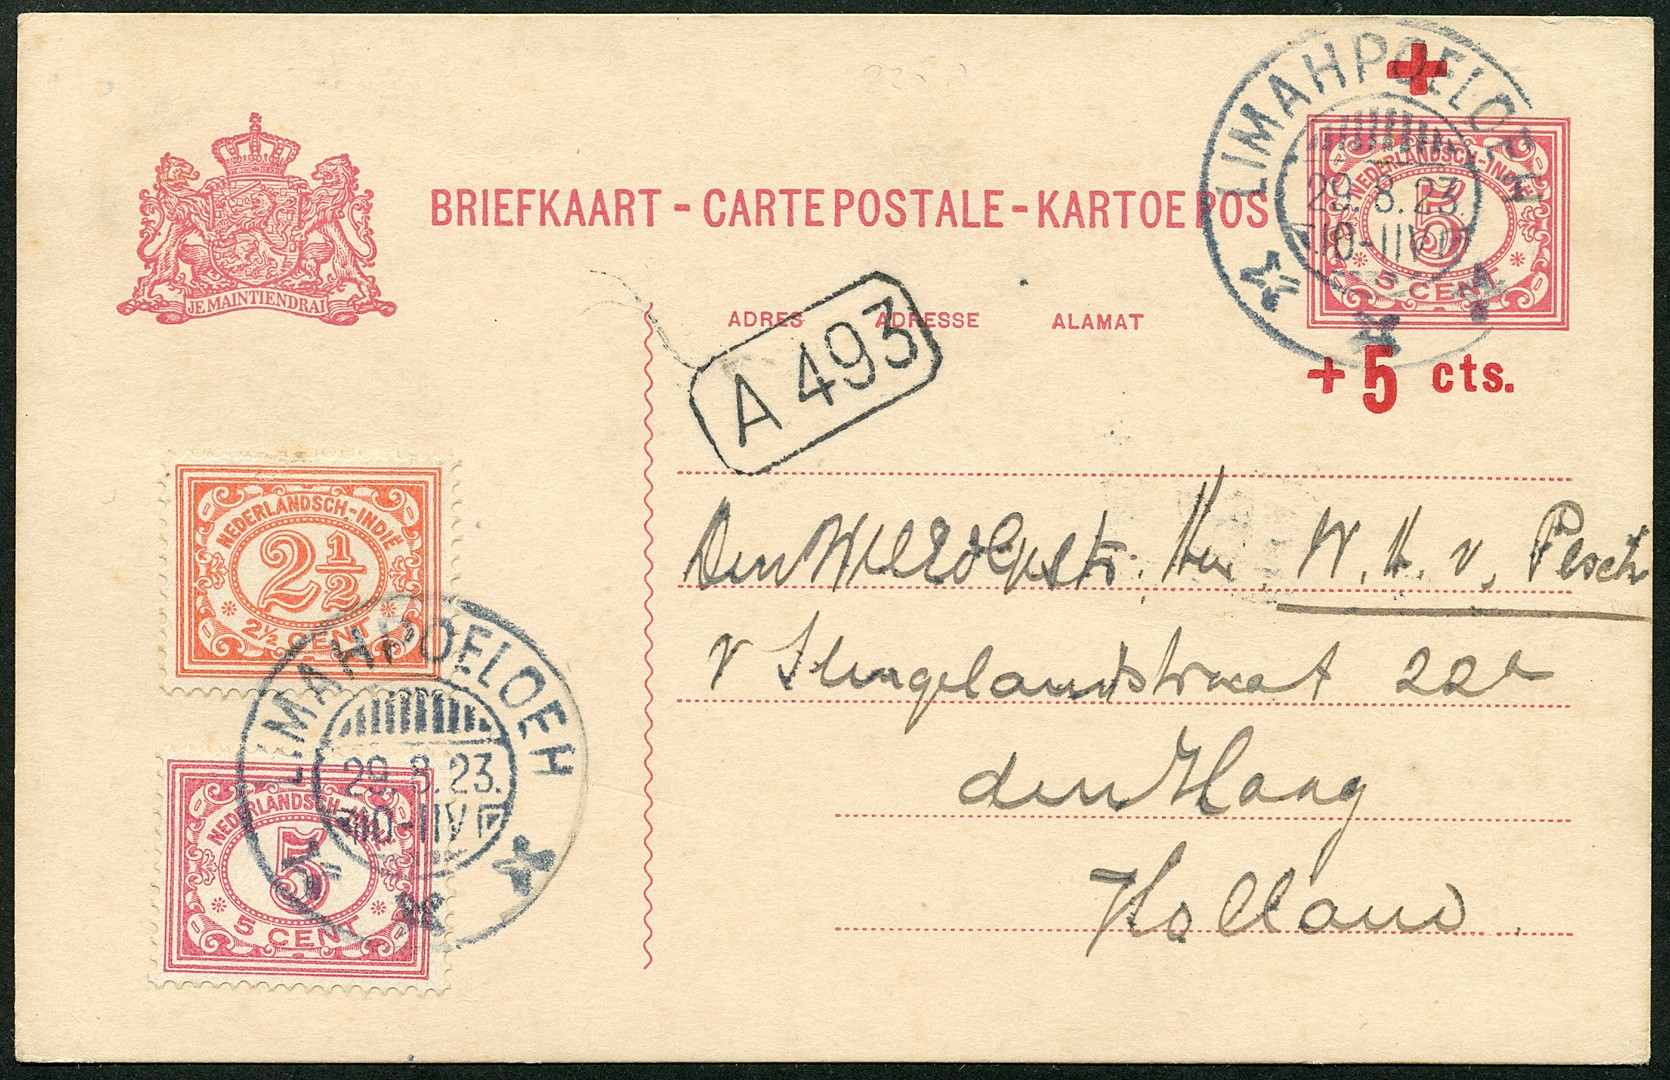 BRIEFKAART - CARTE POSTALE - KARTOE POS
JE MAINTIENDRAI
ADRES ADRESSE ALAMAT
A 493
NEDERLANDSCH-INDIË
5
5 CENT
+ 5 cts.
LIMAHPOELOEH
29.8.23.
10-11V
NEDERLANDSCH-INDIË
2½
2½ CENT
LIMAHPOELOEH
29.8.23.
10-11V
NEDERLANDSCH-INDIË
5
5 CENT
Den WelEdGestr. Heer W. H. v. Pesch
v Slingelandtstraat 22a
den Haag
Holland.